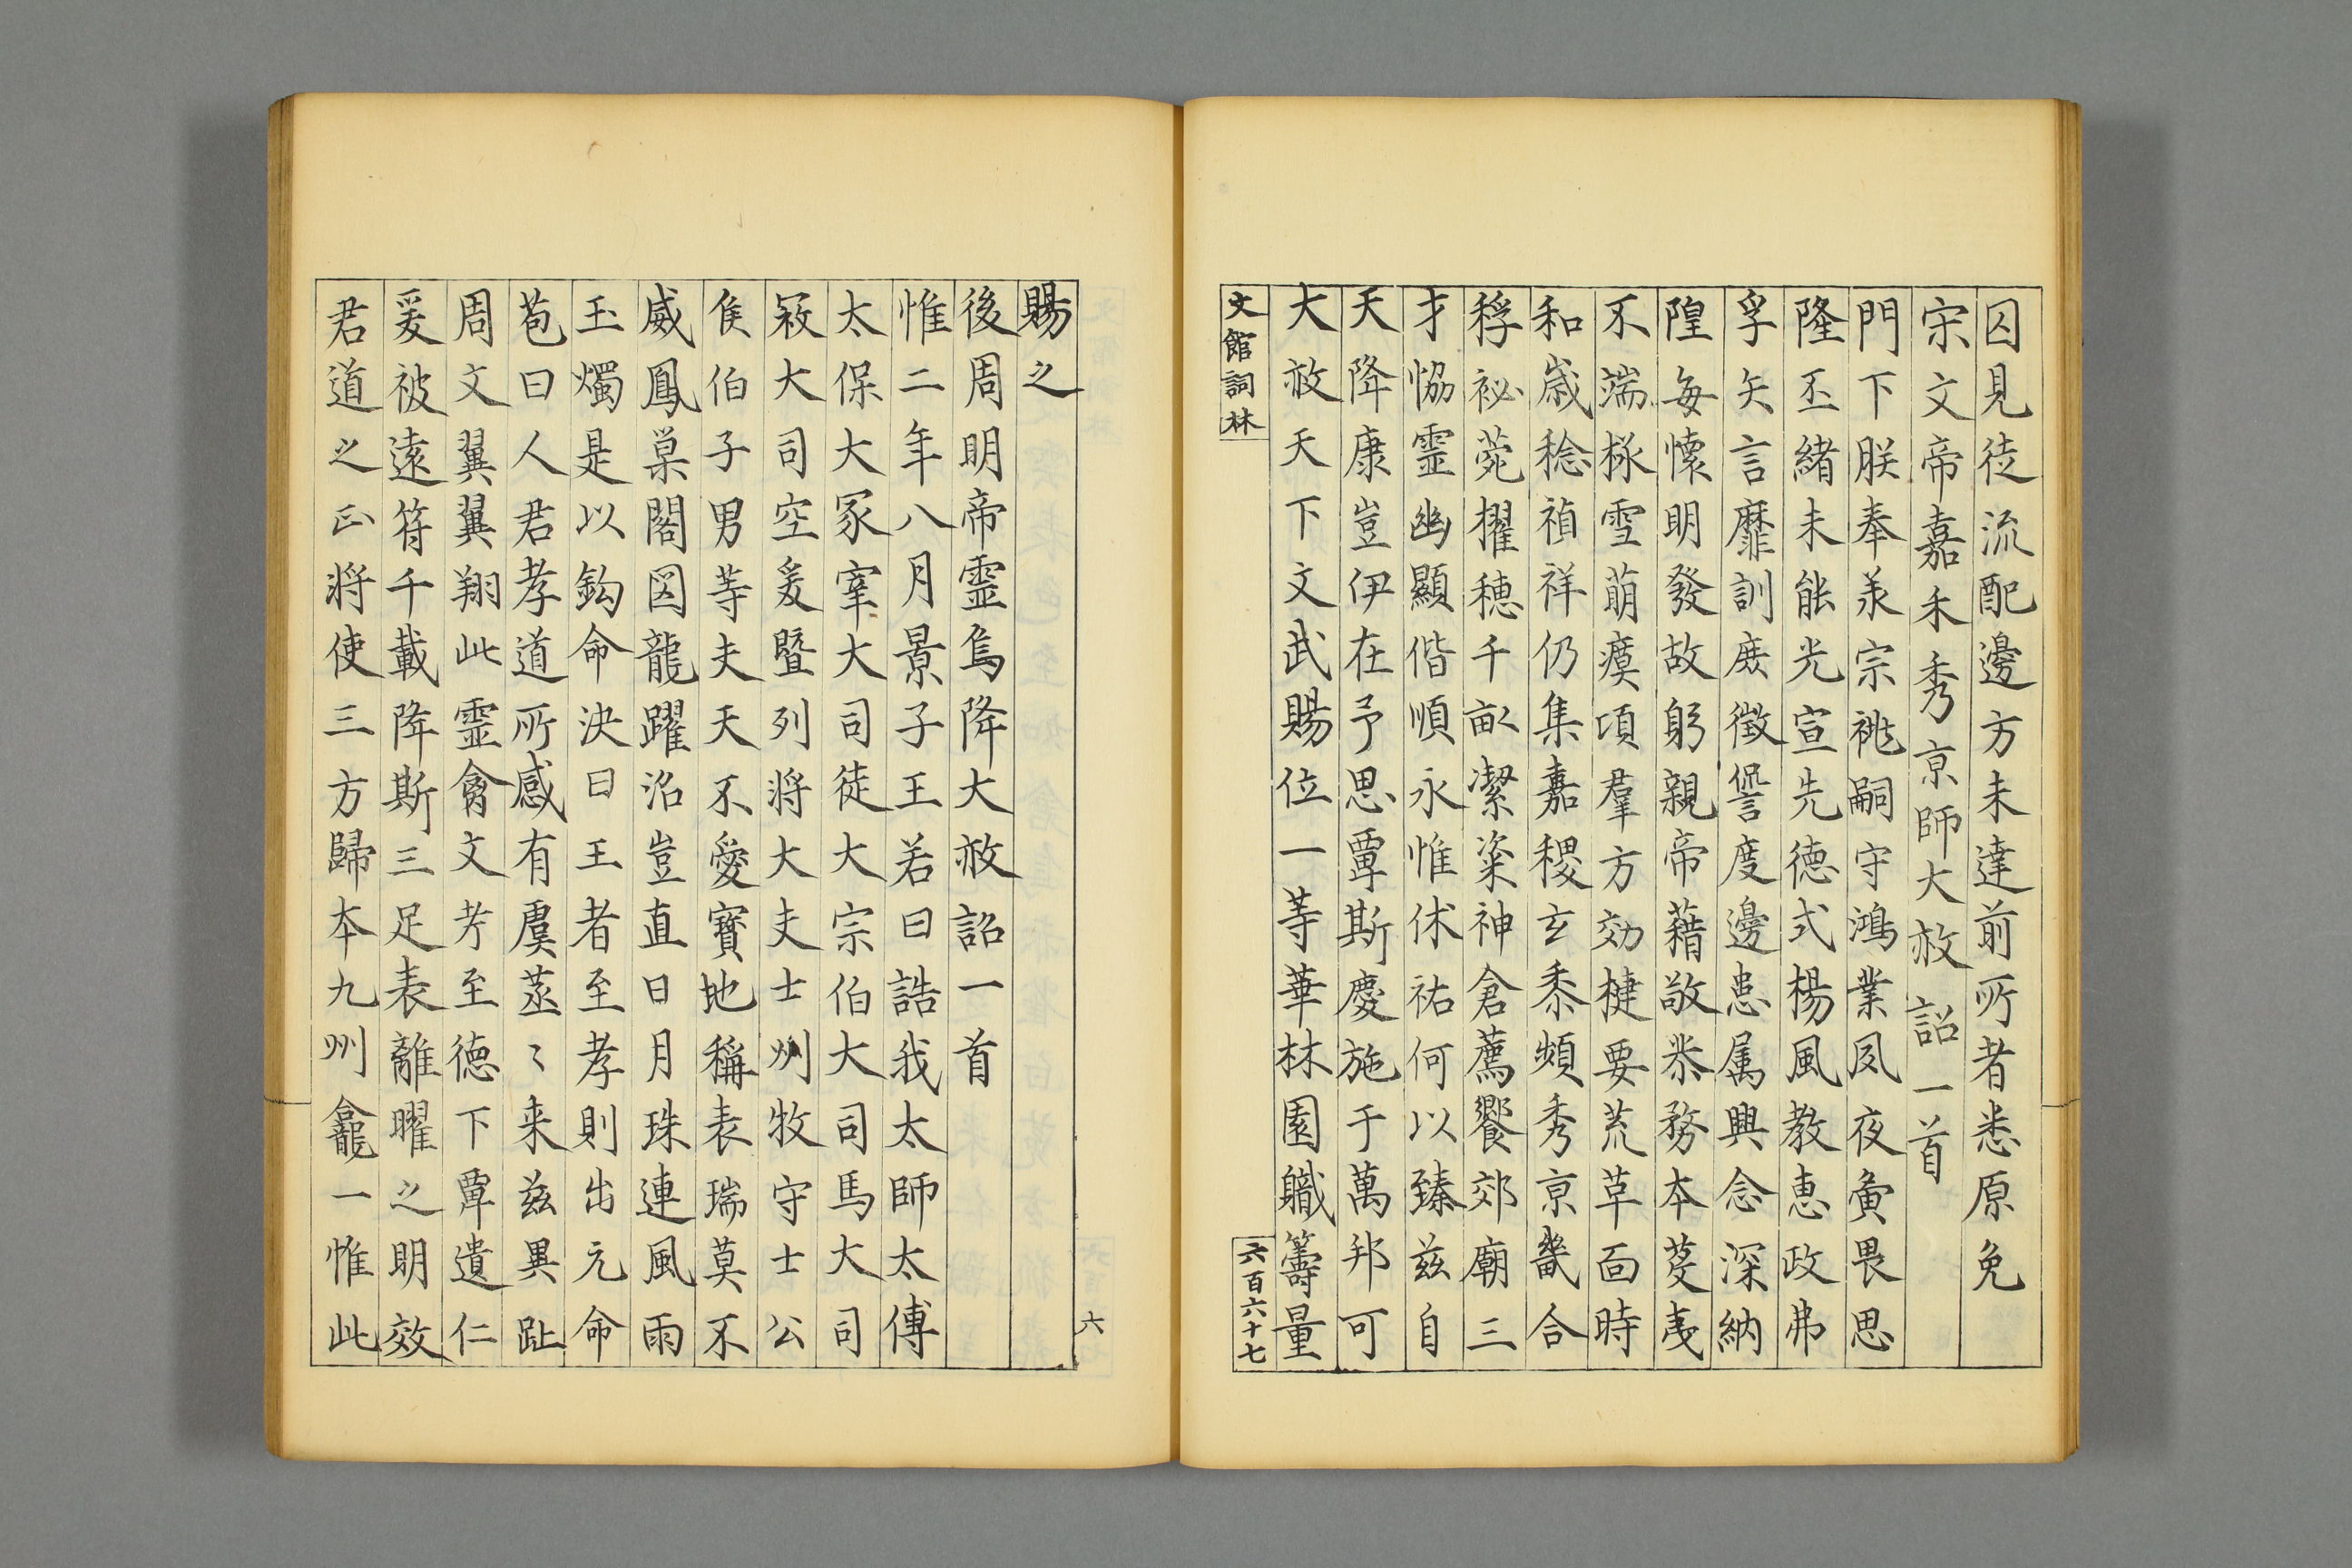 囚見徒流配邊方未達前所者悉原免
宋文帝嘉禾秀京師大赦詔一首
門下朕奉承宗祧嗣守鴻業夙夜夤畏思
隆丕緒未能光宣先德式楊風教惠政弗
孚矢言靡訓庶徵諐度邊患属興念深納
隍每懷明發故躬親帝藉敬恭務本芟夷
不端椓雪萌瘼項羣方効楗要荒草面時
和歲稔禎祥仍集嘉稷玄黍頻秀京畿合
稃袐菀擢穗千畝潔粢神倉薦饗郊廟三
才恊霊幽顯偕順永惟休祐何以臻茲自
天降康豈伊在予思覃斯慶施于萬邦可
大赦天下文武賜位一等華林園職籌量
文館詞林
六百六十七
六
賜之
後周明帝霊烏降大赦詔一首
惟二年八月景子王若曰誥我太師太傅
太保大冢宰大司徒大宗伯大司馬大司
冦大司空爰曁列將大夫士州牧守士公
侯伯子男等夫天不愛寳地稱表瑞莫不
威鳳巢閣図龍躍沼豈直日月珠連風雨
玉燭是以鈎命決曰王者至孝則出元命
苞曰人君孝道所感有虞蒸〻来茲異趾
周文翼翼翔此霊禽文考至德下覃遺仁
爰被遠符千載降斯三足表離曜之明效
君道之正将使三方歸本九州龕一惟此